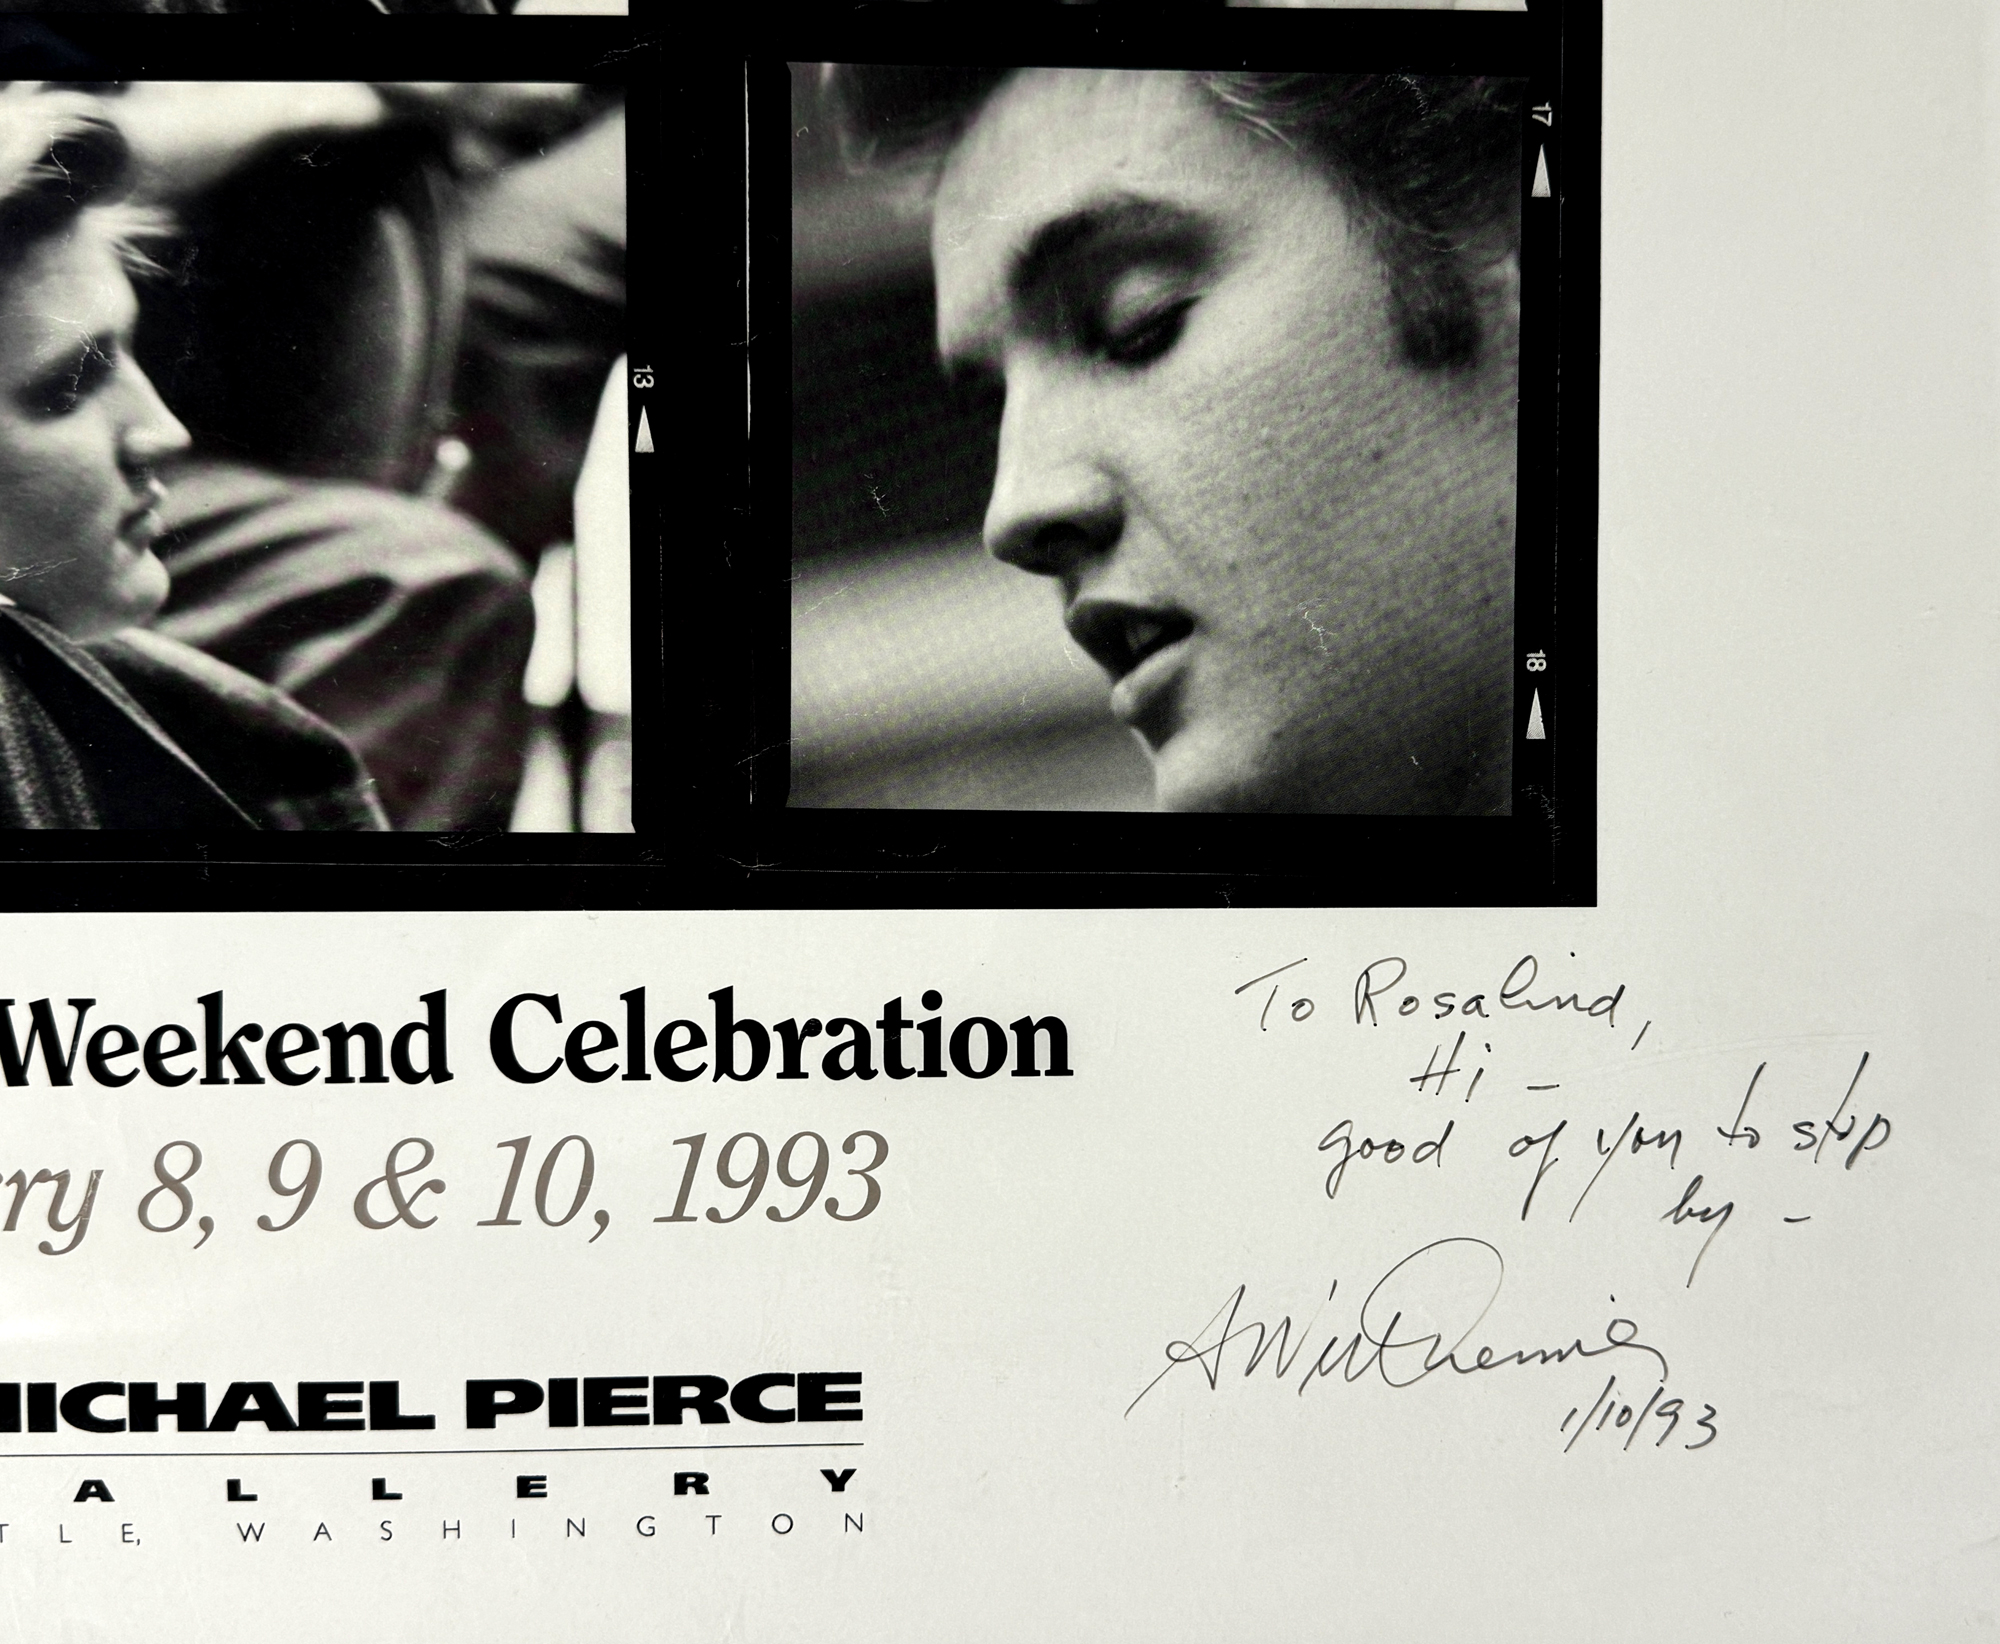 17
13
18
Weekend Celebration
ry 8, 9 & 10, 1993
MICHAEL PIERCE
ALLERY
TLE, WASHINGTON
To Rosalind,
Hi –
good of you to stop
by –
1/10/93